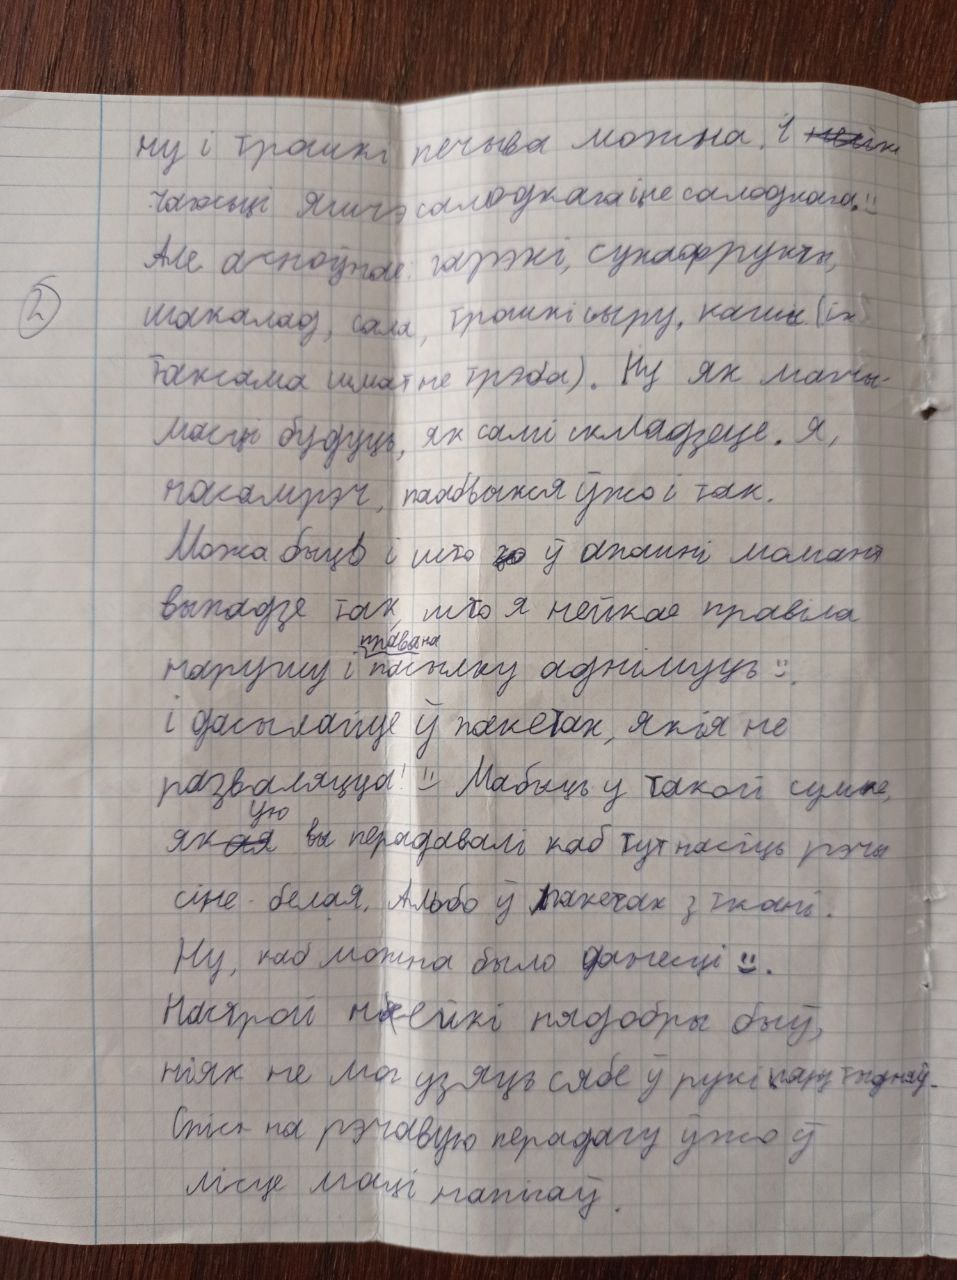 ну і трошкі печыва можна. І
чагосьці яшчэ салодкага і не салоднага.
Але асноўнае: гарэхі, сухафрукты,
шакалад, сала, трошкі сыру, кашы (іх
таксама шмат не трэба). Ну як магчы-
масці будуць, як самі складзеце. Я,
насамрэч, паабвыкся ўжо і так.
Можа быць і што ў апошні момант
выпадзе так, што я нейкае правіла
парушу і права на пасылку аднімуць :).
І дасылайце ў пакетах, якія не
разваляцца! :) Мабыць у такой сумке,
якую вы перадавалі каб тут насіць рэчы
сіне-белая. Альбо ў пакетах з ткані.
Ну, каб можна было данесці :).
Настрой нейкі нядобры быў,
ніяк не мог узяць сябе ў рукі пару тыдняў.
Спіс на рэчавую перадачу ўжо ў
лісце маці напісаў.
2